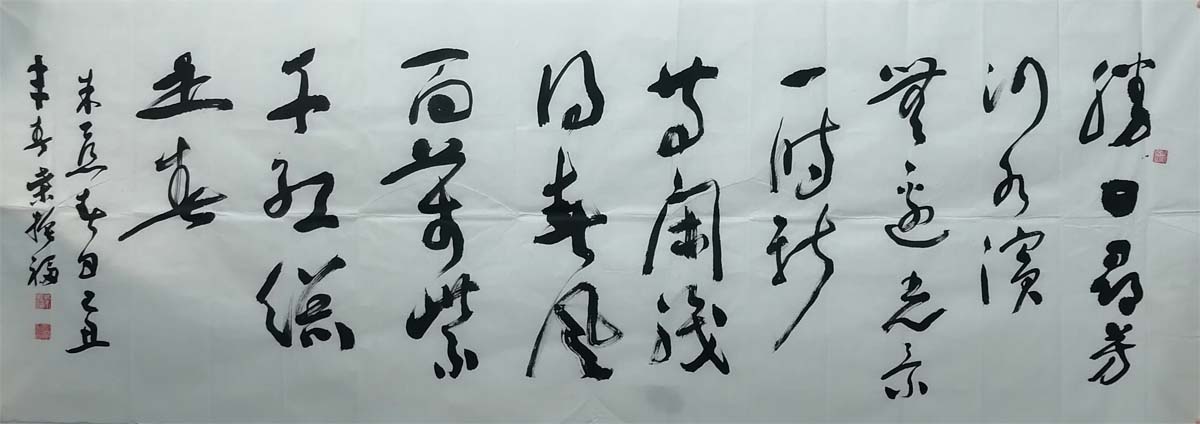 勝日尋芳
泗水濱
無邊光景
一時新
等閑識
得東風
面萬紫
千紅總
是春
朱熹春日己丑
年春振福